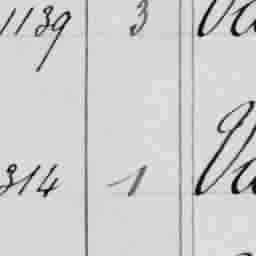 1139 3 Va
314 1 Va